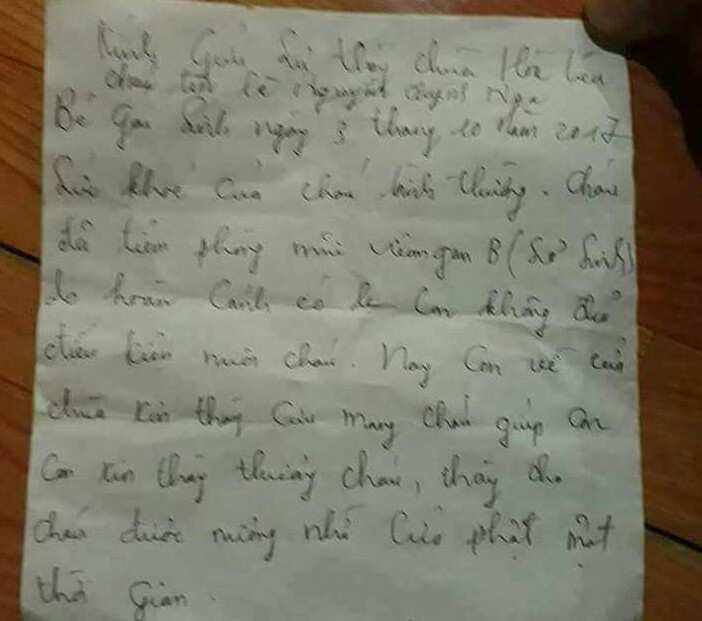 Kính Gửi Sư thầy chùa
cháu tên Lê Nguyễn Quỳnh Nga
Bé gái Sinh ngày 3 tháng 10 năm 2017
Sức khoẻ của cháu bình thường. Cháu
đã tiêm phòng mũi viêm gan B (Sơ Sinh)
do hoàn Cảnh Con không đủ
điều kiện nuôi cháu. Nay Con về cửa
chùa xin thầy Cưu mang cháu giúp con
Con xin thầy thương cháu, thầy cho
cháu được nương nhờ Cửa phật một
thời Gian.